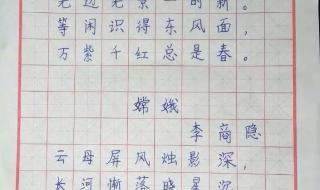 无边光景一时新。
等闲识得东风面，
万紫千红总是春。
嫦娥
李商隐
云母屏风烛影深，
长河渐落晓星沉